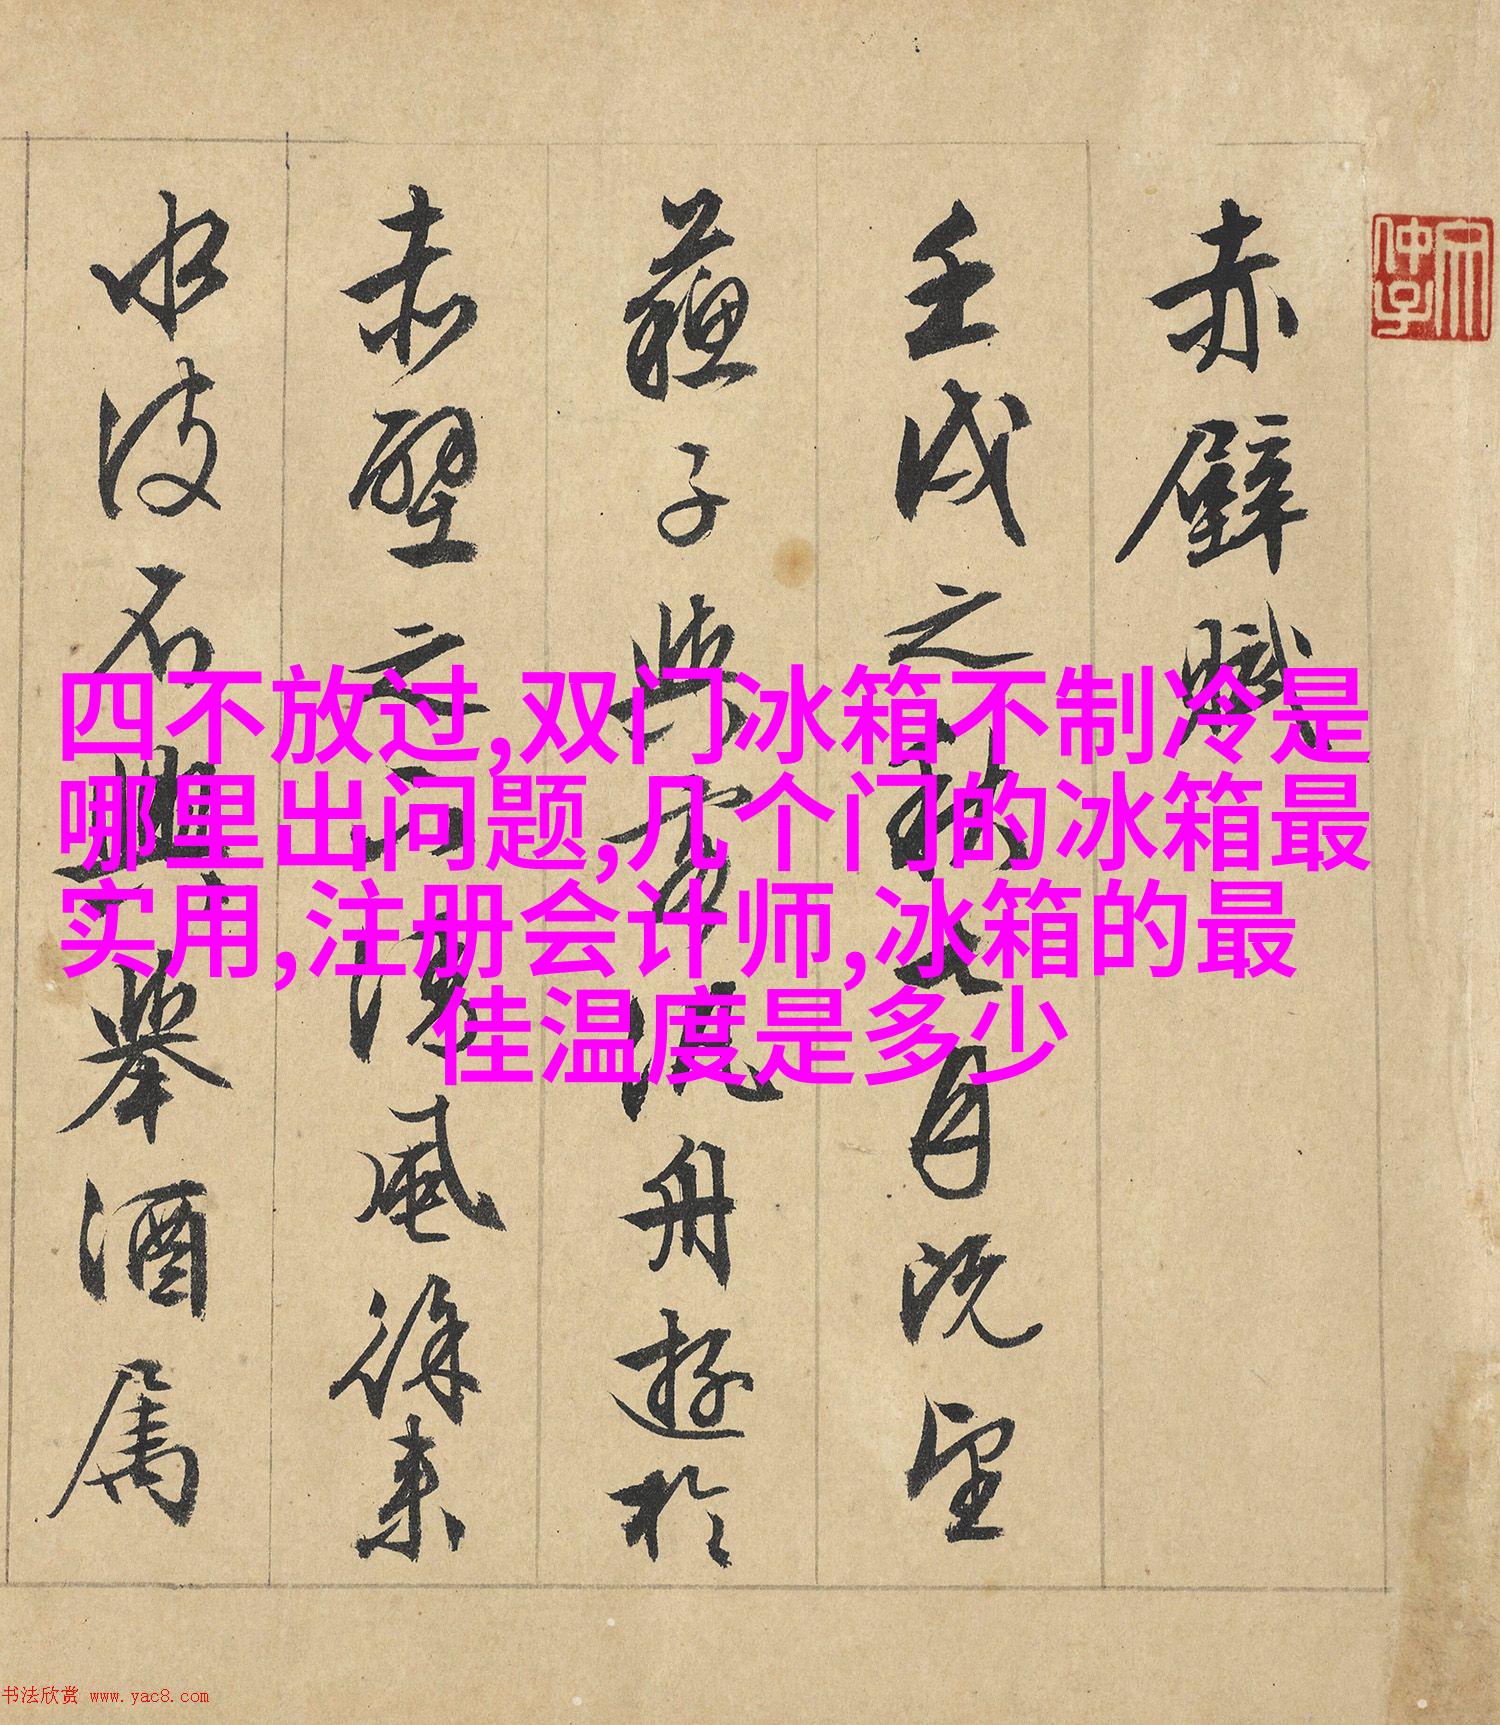 赤壁賦
壬戌之秋七月既望
蘇子與客泛舟遊於
赤壁之下清風徐来
水波不興舉酒属
四不放过,双门冰箱不制冷是
哪里出问题,几个门的冰箱最
实用,注册会计师,冰箱的最
佳温度是多少
书法欣赏 www.yac8.com